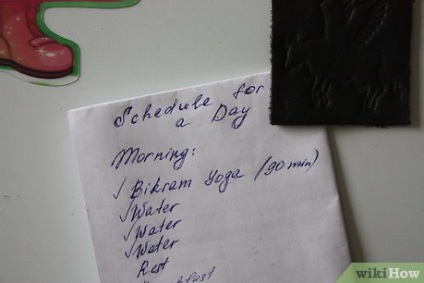 Schedule for
a Day
Morning:
✓ Bikram Yoga (90 min)
✓ Water
✓ Water
✓ Water
Rest
wikiHow